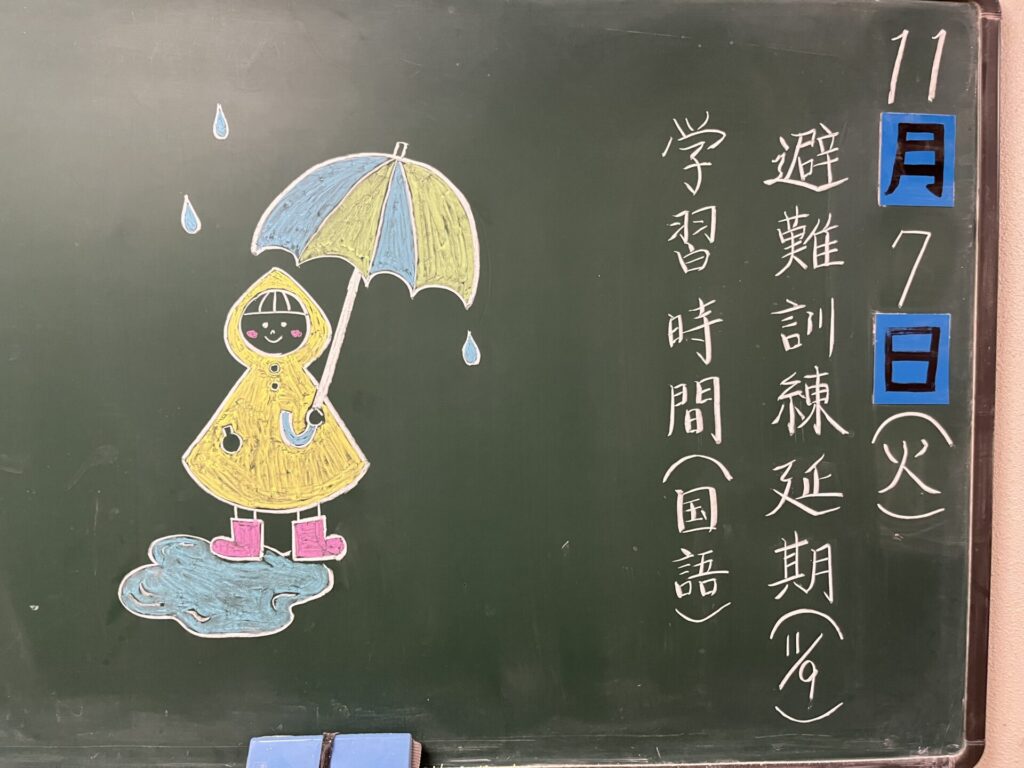 11月7日(火)
避難訓練延期(11/9)
学習時間(国語)